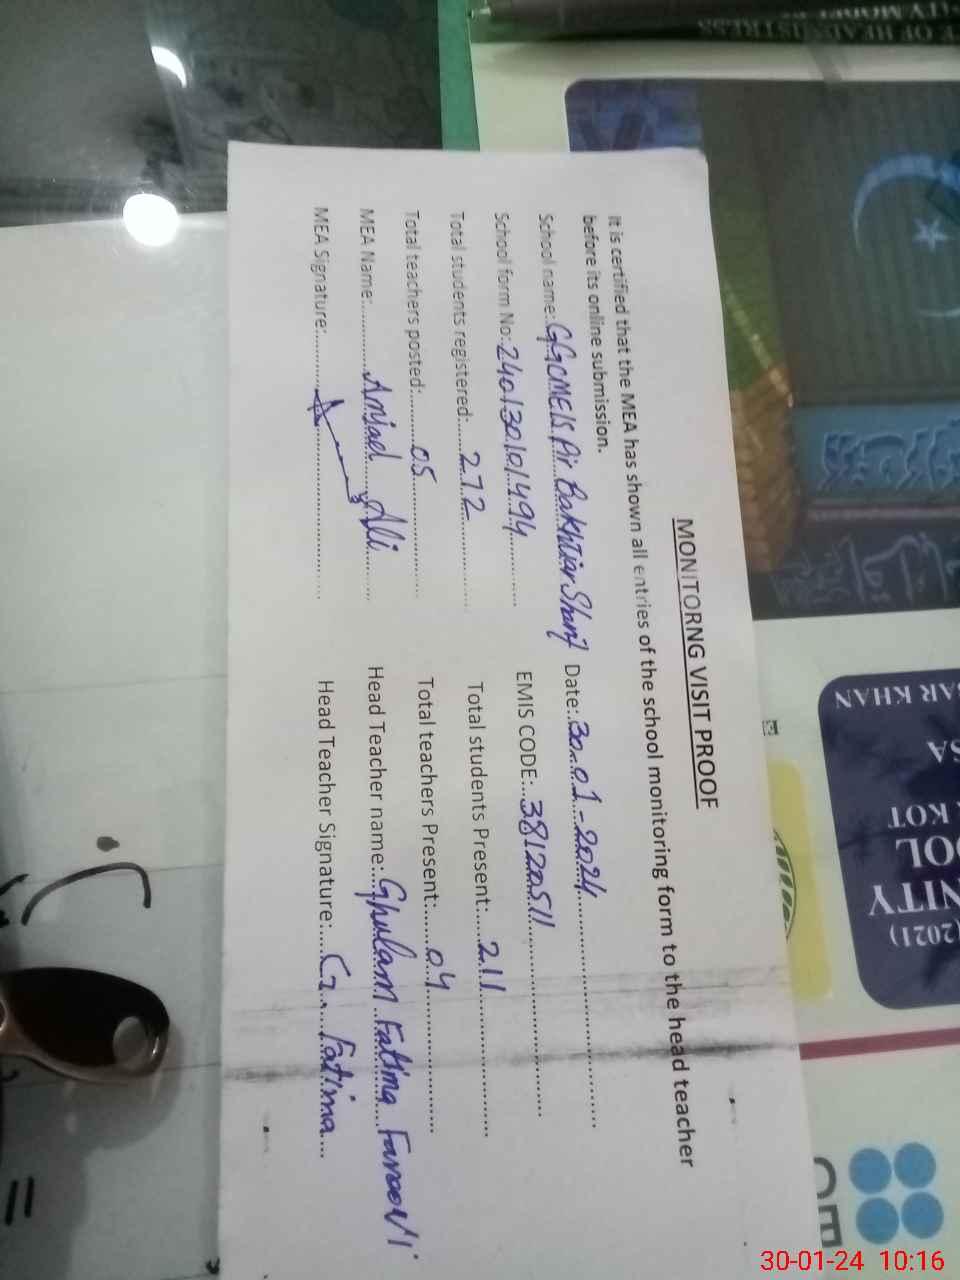 MONITORNG VISIT PROOF
It is certified that the MEA has shown all entries of the school monitoring form to the head teacher
before its online submission.
School name: GGCMEIS Pir Bakhtiar Sharif Date: 30-01-2024
School form No: 240130101494 EMIS CODE: 38120511
Total students registered: 272 Total students Present: 211
Total teachers posted: 05 Total teachers Present: 04
MEA Name: Amjad Ali Head Teacher name: Ghulam Fatima
MEA Signature: Head Teacher Signature: G. Fatima
OF HEADMISTRESS
AR KHAN
SA
KOT
OOL
NITY
(2021)
30-01-24 10:16